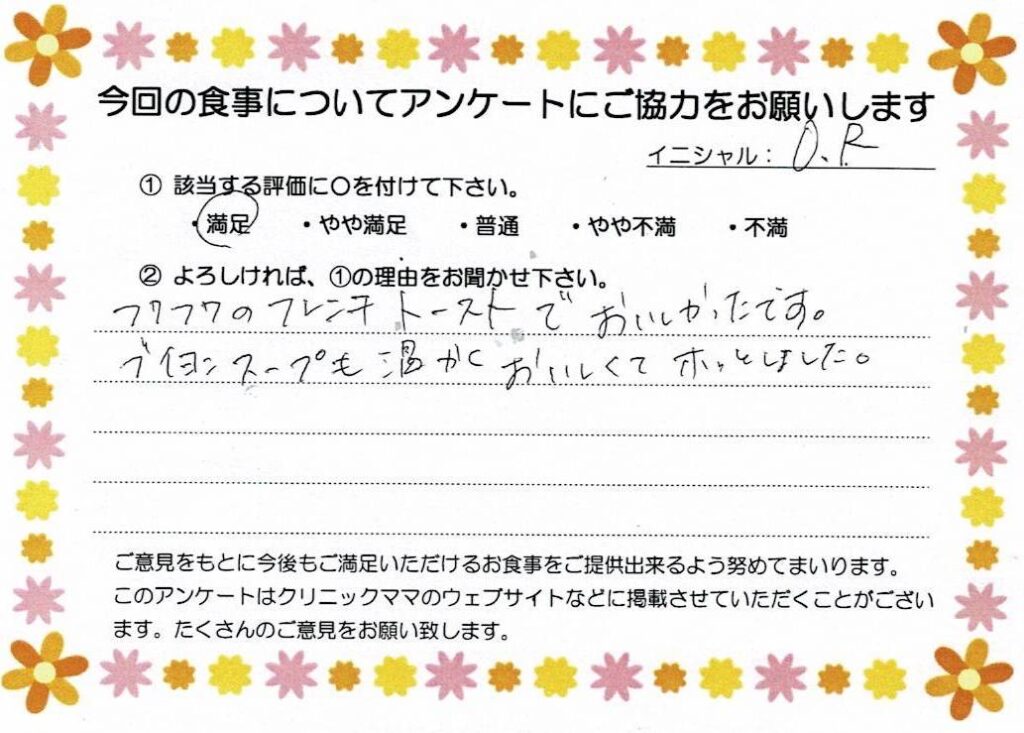 今回の食事についてアンケートにご協力をお願いします
イニシャル： O.R
① 該当する評価に〇を付けて下さい。
・満足 ・やや満足 ・普通 ・やや不満 ・不満
② よろしければ、①の理由をお聞かせ下さい。
フワフワのフレンチトーストでおいしかったです。
ブイヨンスープも温かくおいしくてホッとしました。
ご意見をもとに今後もご満足いただけるお食事をご提供出来るよう努めてまいります。
このアンケートはクリニックママのウェブサイトなどに掲載させていただくことがござい
ます。たくさんのご意見をお願い致します。